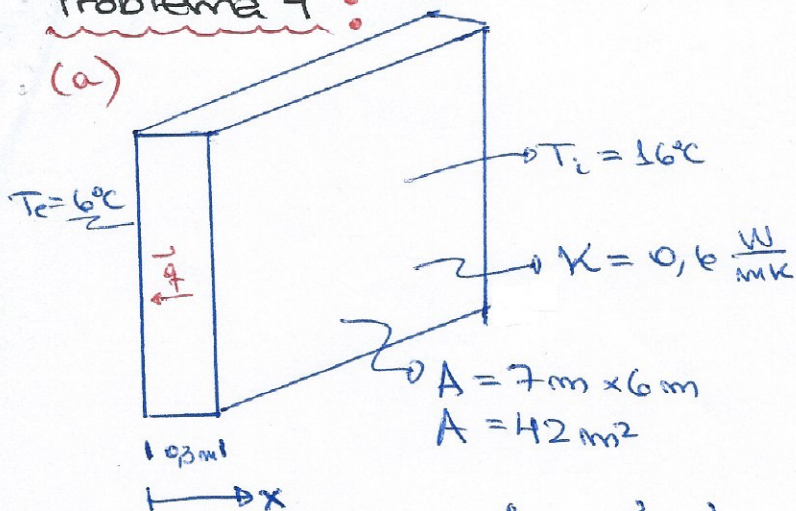 Problema 4:
(a)
Te = 6°C
Ti = 16°C
q
K = 0,6 W/mK
A = 7m x 6m
A = 42 m²
0,3 m
x